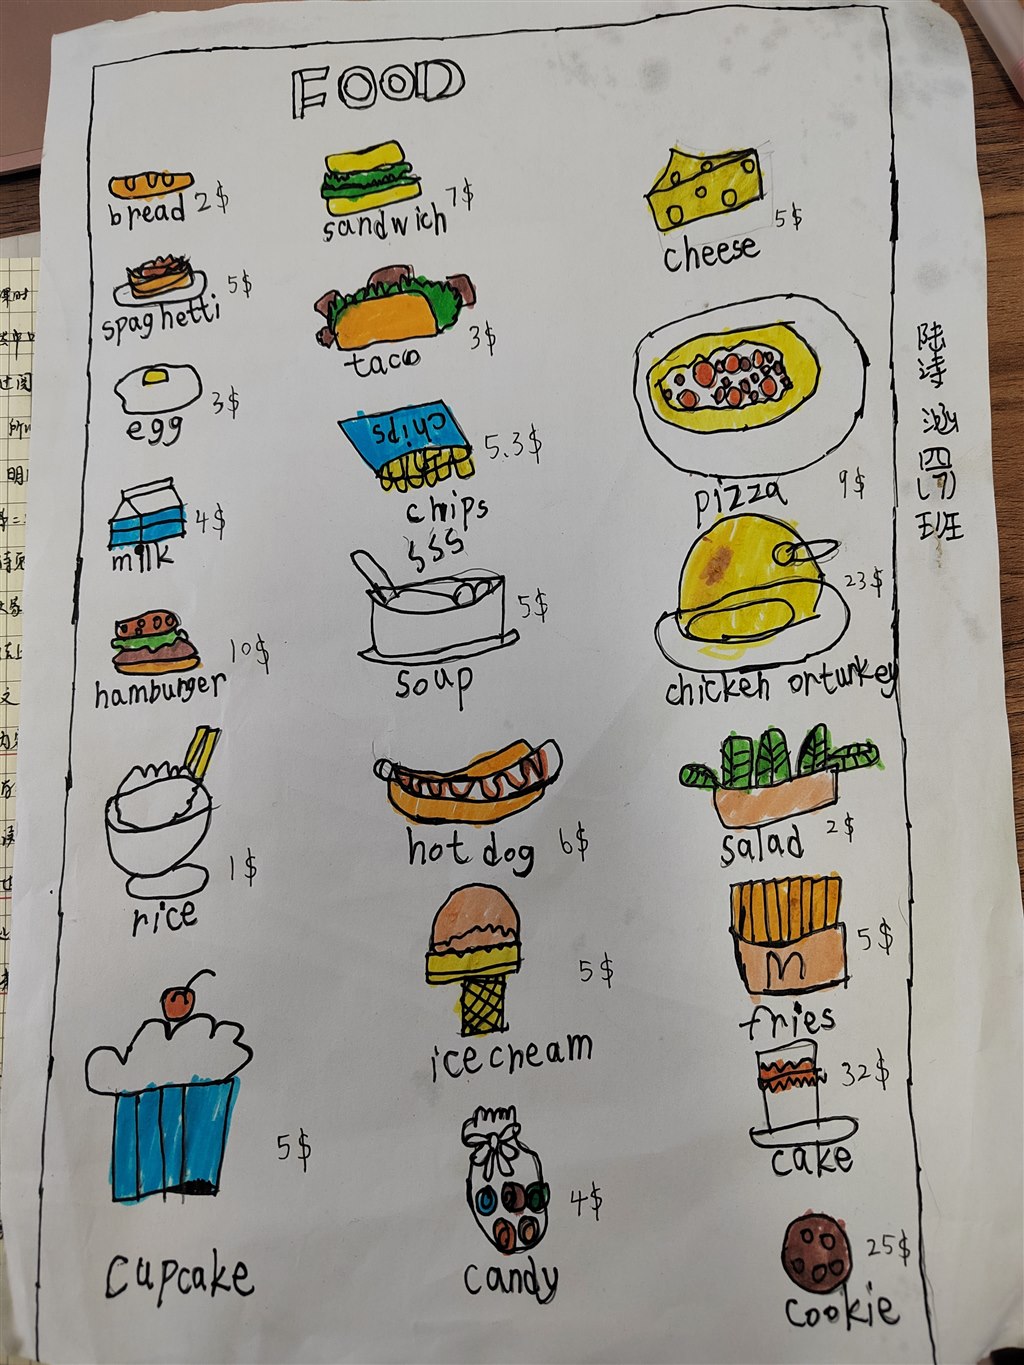 FOOD
bread 2$
sandwich 7$
cheese 5$
spaghetti 5$
taco 3$
pizza 9$
egg 3$
chips
chips 5.3$
milk 4$
soup 5$
chicken orturkey 23$
hamburger 10$
hot dog 6$
salad 2$
rice 1$
ice cheam 5$
m
fries 5$
cake 32$
cupcake 5$
candy 4$
cookie 25$
陆诗涵四(7)班